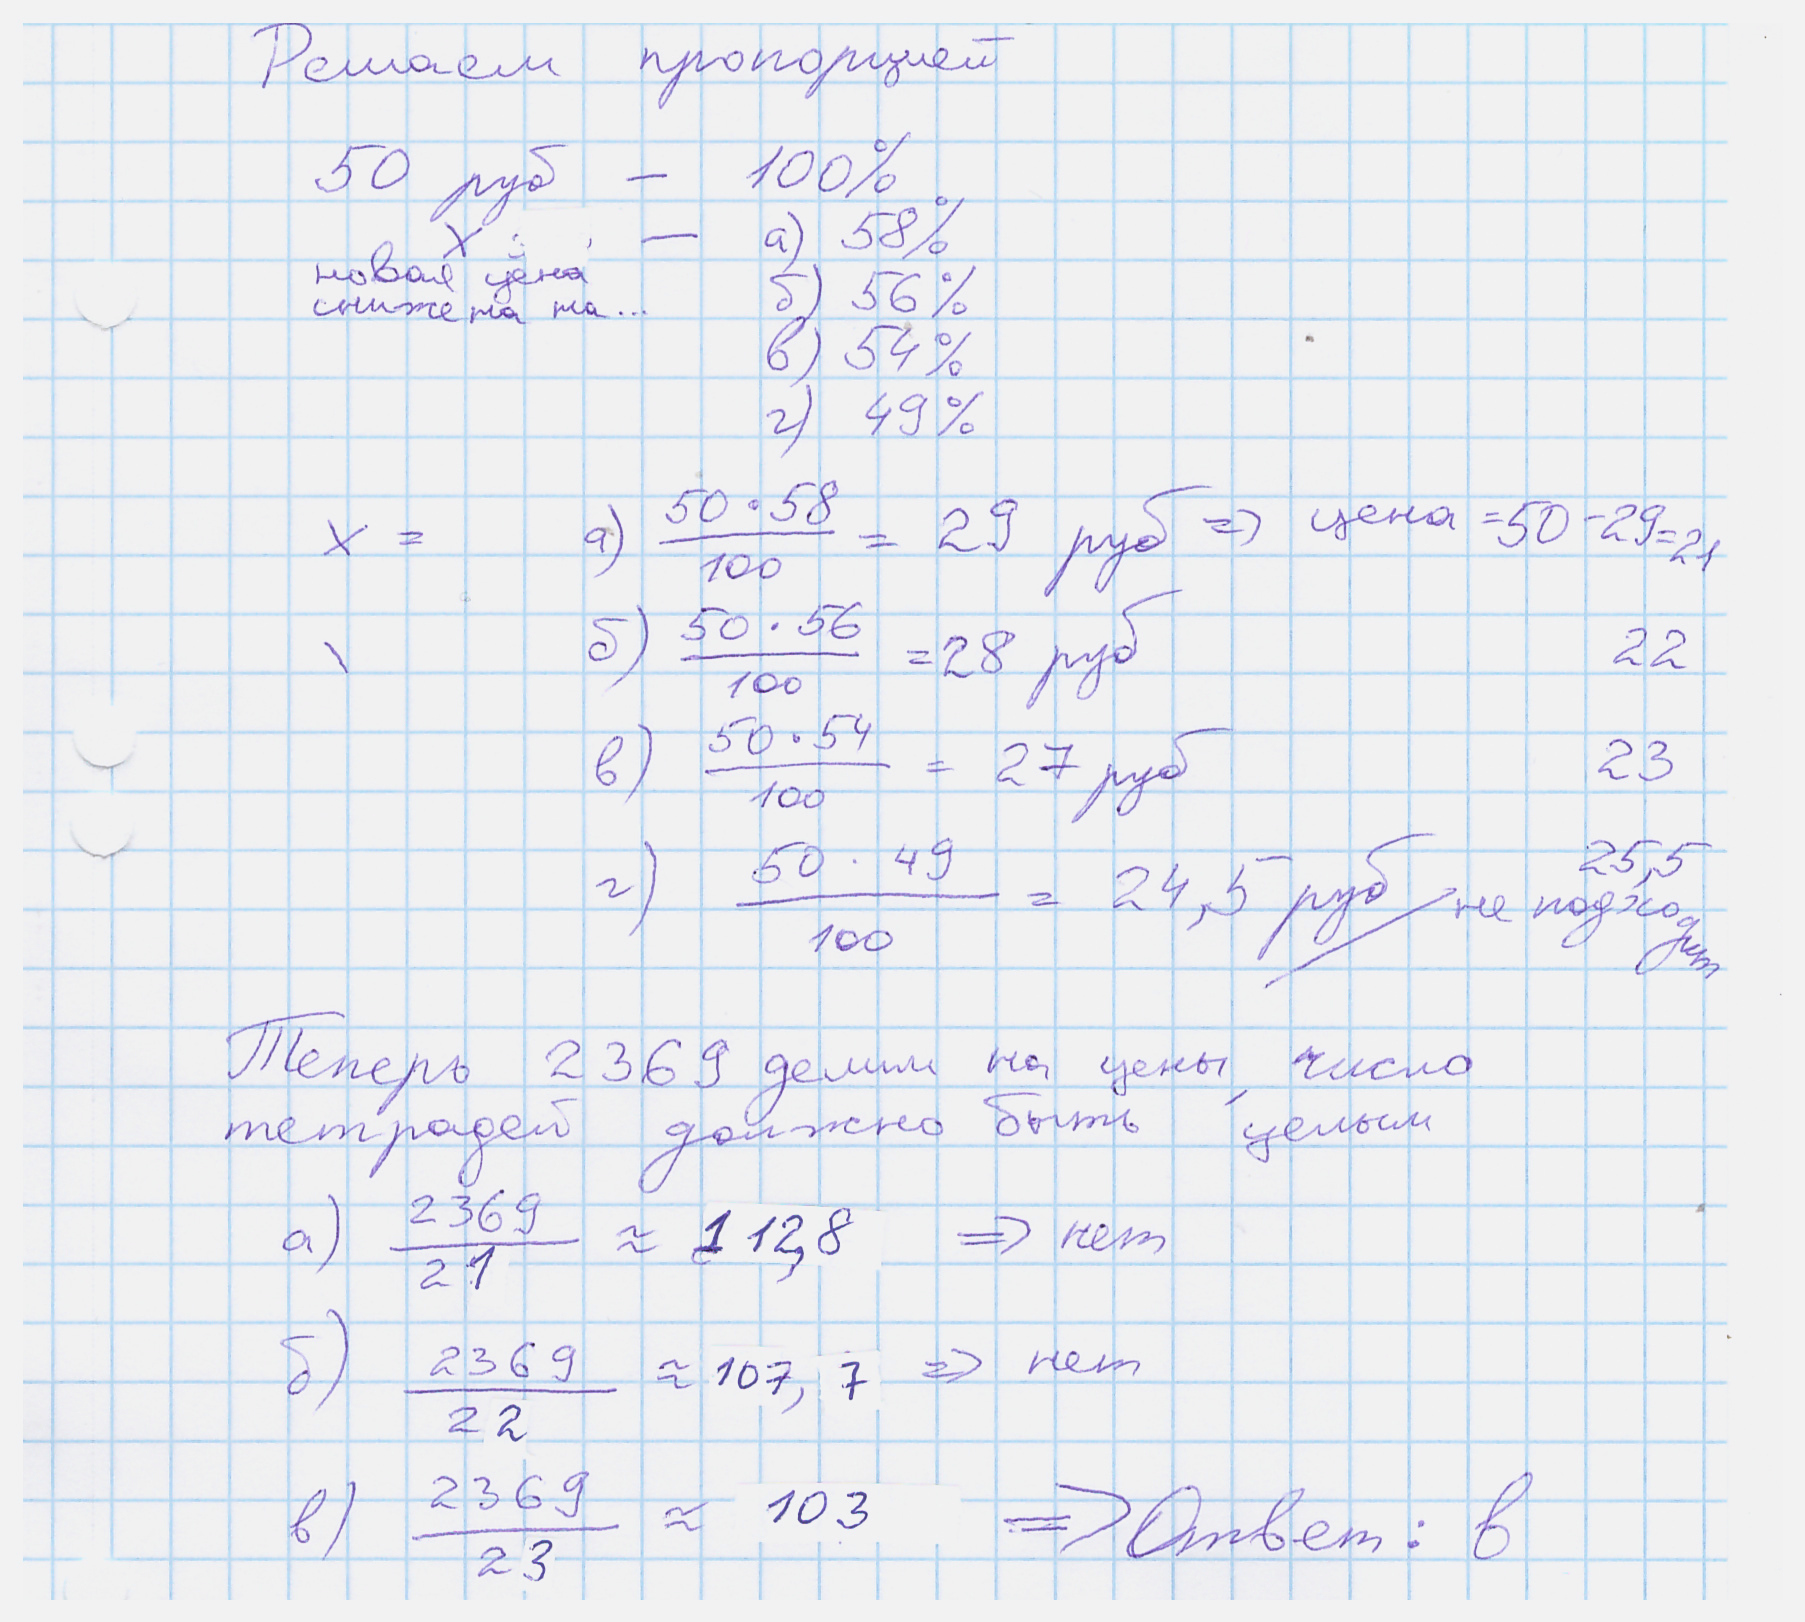 Решаем пропорцией
50 руб – 100%
х – а) 58%
новая цена
снижена на...
б) 56%
в) 54%
г) 49%
х = а) 50·58/100 = 29 руб => цена =50-29=21
б) 50·56/100 =28 руб 22
в) 50·54/100 = 27 руб 23
г) 50·49/100 = 24,5 руб 25,5
не подходит
Теперь 2369 делим на цены, число
тетрадей должно быть целым
а) 2369/21 ≈ 112,8 => нет
б) 2369/22 ≈ 107,7 => нет
в) 2369/23 ≈ 103 => Ответ: в